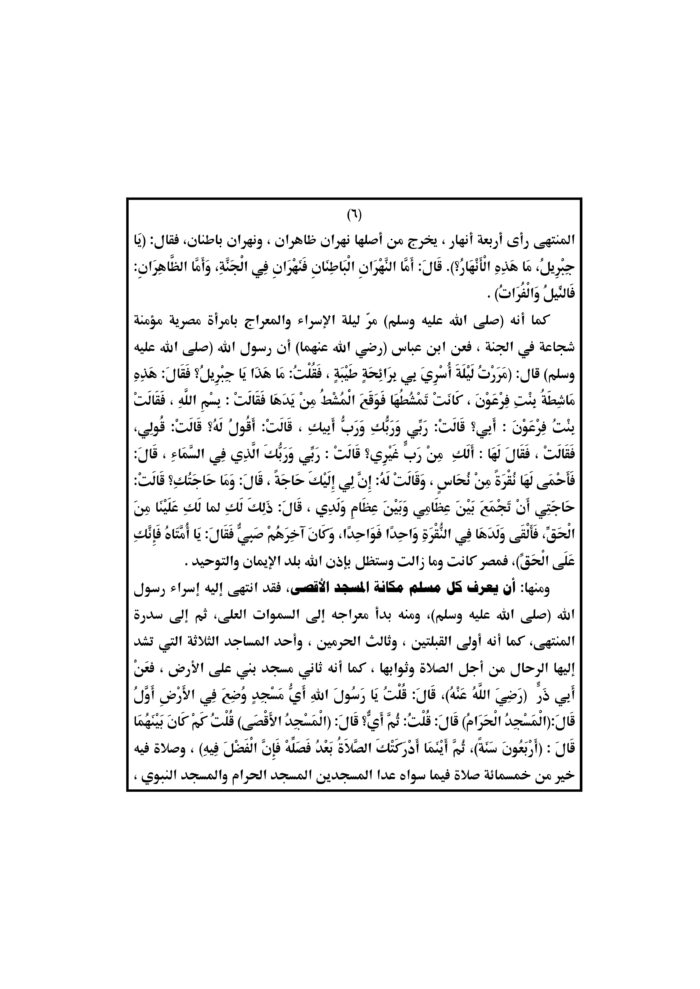 (٦)
المنتهى رأى أربعة أنهار ، يخرج من أصلها نهران ظاهران ، ونهران باطنان، فقال: (يَا
جِبْرِيلُ، مَا هَذِهِ الْأَنْهَارُ؟). قَالَ: أَمَّا النَّهْرَانِ الْبَاطِنَانِ فَنَهْرَانِ فِي الْجَنَّةِ، وَأَمَّا الظَّاهِرَانِ:
فَالنِّيلُ وَالْفُرَاتُ) .
كما أنه (صلى الله عليه وسلم) مرّ ليلة الإسراء والمعراج بامرأة مصرية مؤمنة
شجاعة في الجنة ، فعن ابن عباس (رضي الله عنهما) أن رسول الله (صلى الله عليه
وسلم) قال: (مَرَرْتُ لَيْلَةَ أُسْرِيَ بِي بِرَائِحَةٍ طَيِّبَةٍ ، فَقُلْتُ: مَا هَذَا يَا جِبْرِيلُ؟ فَقَالَ: هَذِهِ
مَاشِطَةُ بِنْتِ فِرْعَوْنَ ، كَانَتْ تَمْشُطُهَا فَوَقَعَ الْمُشْطُ مِنْ يَدَهَا فَقَالَتْ : بِسْمِ اللَّهِ ، فَقَالَتْ
بِنْتُ فِرْعَوْنَ : أَبِي؟ قَالَتْ: رَبِّي وَرَبُّكِ وَرَبُّ أَبِيكِ ، قَالَتْ: أَقُولُ لَهُ؟ قَالَتْ: قُولِي،
فَقَالَتْ ، فَقَالَ لَهَا : أَلَكِ مِنْ رَبٍّ غَيْرِي؟ قَالَتْ : رَبِّي وَرَبُّكَ الَّذِي فِي السَّمَاءِ ، قَالَ:
فَأَحْمَى لَهَا نُقْرَةً مِنْ نُحَاسٍ ، وَقَالَتْ لَهُ: إِنَّ لِي إِلَيْكَ حَاجَةً ، قَالَ: وَمَا حَاجَتُكِ؟ قَالَتْ:
حَاجَتِي أَنْ تَجْمَعَ بَيْنَ عِظَامِي وَبَيْنَ عِظَامِ وَلَدِي ، قَالَ: ذَلِكَ لَكِ لما لَكِ عَلَيْنَا مِنَ
الْحَقِّ، فَأَلْقَى وَلَدَهَا فِي النُّقْرَةِ وَاحِدًا فَوَاحِدًا، وَكَانَ آخِرَهُمْ صَبِيٌّ فَقَالَ: يَا أُمَّتَاهُ فَإِنَّكِ
عَلَى الْحَقِّ)، فمصر كانت وما زالت وستظل بإذن الله بلد الإيمان والتوحيد .
ومنها: أن يعرف كل مسلم مكانة المسجد الأقصى، فقد انتهى إليه إسراء رسول
الله (صلى الله عليه وسلم)، ومنه بدأ معراجه إلى السموات العلى، ثم إلى سدرة
المنتهى، كما أنه أولى القبلتين ، وثالث الحرمين ، وأحد المساجد الثلاثة التي تشد
إليها الرحال من أجل الصلاة وثوابها ، كما أنه ثاني مسجد بني على الأرض ، فعَنْ
أَبِي ذَرٍّ (رَضِيَ اللَّهُ عَنْهُ)، قَالَ: قُلْتُ يَا رَسُولَ اللهِ أَيُّ مَسْجِدٍ وُضِعَ فِي الأَرْضِ أَوَّلُ
قَالَ:(الْمَسْجِدُ الْحَرَامُ) قَالَ: قُلْتُ: ثُمَّ أَيٌّ؟ قَالَ: (الْمَسْجِدُ الأَقْصَى) قُلْتُ كَمْ كَانَ بَيْنَهُمَا
قَالَ : (أَرْبَعُونَ سَنَةً)، ثُمَّ أَيْنَمَا أَدْرَكَتْكَ الصَّلاَةُ بَعْدُ فَصَلِّهْ فَإِنَّ الْفَضْلَ فِيهِ) ، وصلاة فيه
خير من خمسمائة صلاة فيما سواه عدا المسجدين المسجد الحرام والمسجد النبوي ،